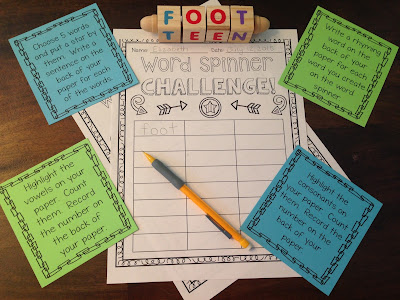 FOOT
TEEN
Name: Elizabeth Date:
Word Spinner
CHALLENGE!
foot
Choose 5 words
and put a star by
them. Write a
sentence on the
back of your
paper for each
of the words.
Write a rhyming
word on the
back of your
paper for each
word you create
on the word
spinner.
Highlight the
vowels on your
paper. Count
them. Record
the number on
the back of
your paper.
Highlight the
consonants on
your paper. Count
them. Record the
number on the
back of your
paper.